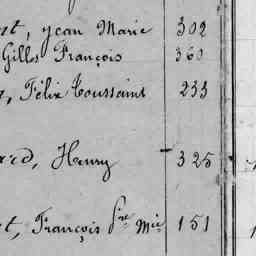 rt, Jean Marie 302
Gilles François 360
, Félix Toussaint 233
ard, Henry 325
t, François fre Mie 151